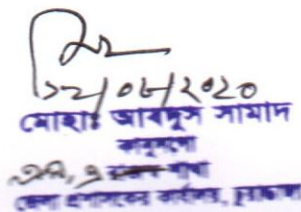 ১২/০৮/২০২০
মোহাঃ আবদুস সামাদ
কানুনগো
এল, এ শাখা
জেলা প্রশাসকের কার্যালয়,